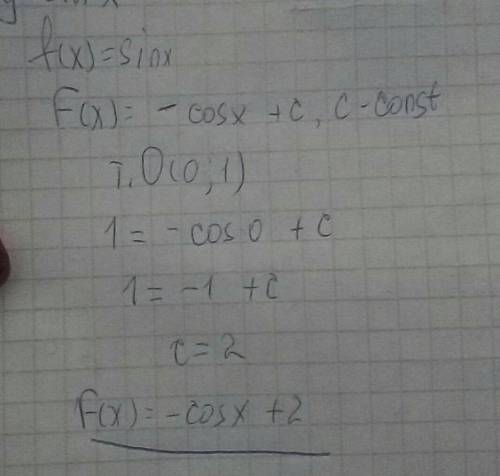 f(x)=sinx
F(x)= -cosx +c, c-const
т. O(0;1)
1= -cos0 +c
1= -1 +c
c=2
F(x)= -cosx +2